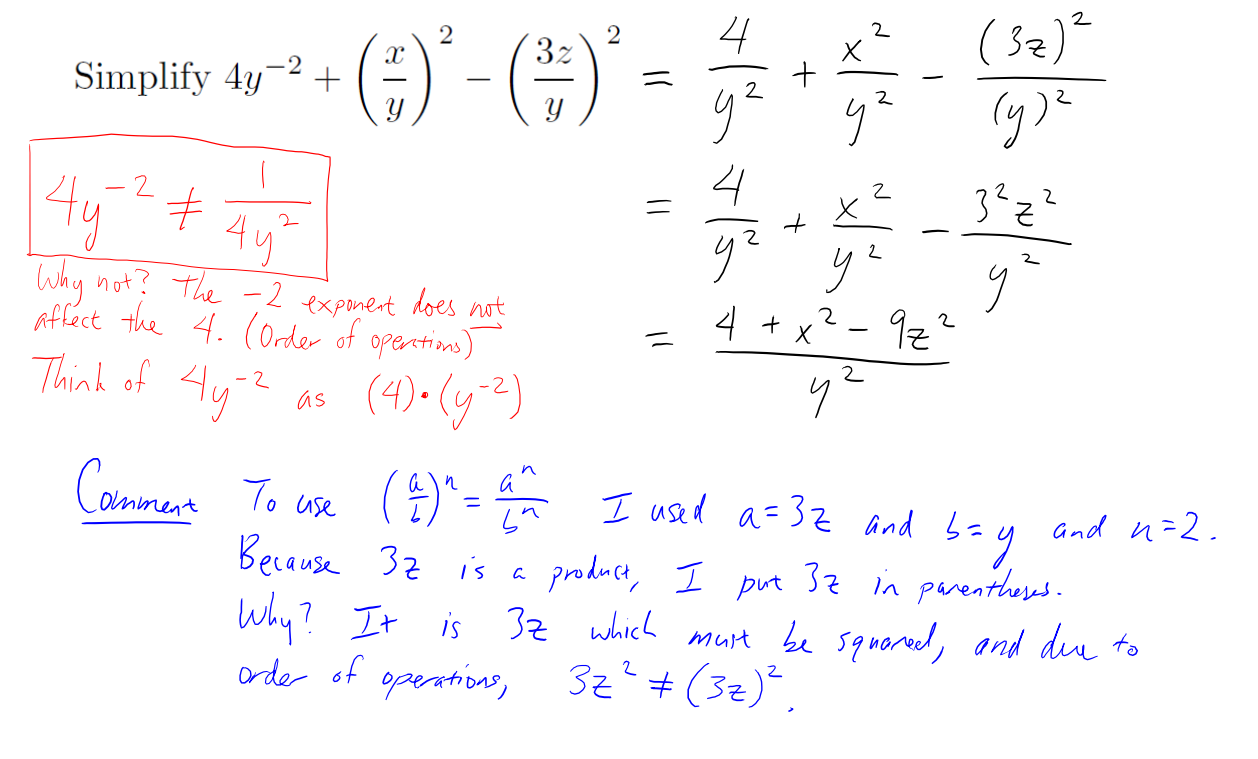 Simplify 4y⁻² + (x/y)² − (3z/y)² = 4/y² + x²/y² − (3z)²/(y)²
= 4/y² + x²/y² − 3²z²/y²
= (4 + x² − 9z²)/y²
4y⁻² ≠ 1/(4y²)
Why not? The −2 exponent does not
affect the 4. (Order of operations)
Think of 4y⁻² as (4)·(y⁻²)
Comment To use (a/b)ⁿ = aⁿ/bⁿ I used a=3z and b=y and n=2.
Because 3z is a product, I put 3z in parentheses.
Why? It is 3z which must be squared, and due to
order of operations, 3z² ≠ (3z)².